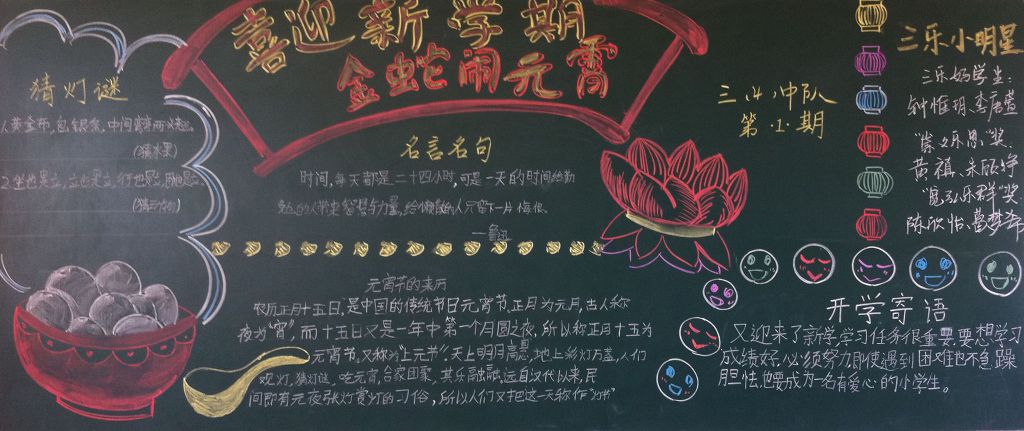 喜迎新学期
金蛇闹元霄
猜灯谜
(猜水果)
2.坐也是立,立也是立,行也是立,卧也是立。
(猜动物)
名言名句
时间,每天都是二十四小时,可是一天的时间给勤
勉的人带来智慧与力量,给懒散的人只留下一片悔恨。
—鲁迅
三(4)中队
第1期
三乐小明星
三乐好学生:
"崇文乐思"奖
黄祺、朱欣铮
"宽弘乐群"奖
陈欣怡、
元宵节的来历
农历正月十五日,是中国的传统节日元宵节,正月为元月,古人称
夜为"宵",而十五日又是一年中第一个月圆之夜,所以称正月十五为
元宵节,又称为"上元节",天上明月高悬,地上彩灯万盏,人们
观灯,猜灯谜,吃元宵,合家团聚,其乐融融,远自汉代以来,民
间即有元夜张灯赏灯的习俗,所以人们又把这一天称作"灯节"
开学寄语
又迎来了新学,学习任务很重要,要想学习
成绩好,必须努力,即使遇到困难也不急躁
胆怯,也要成为一名有爱心的小学生。